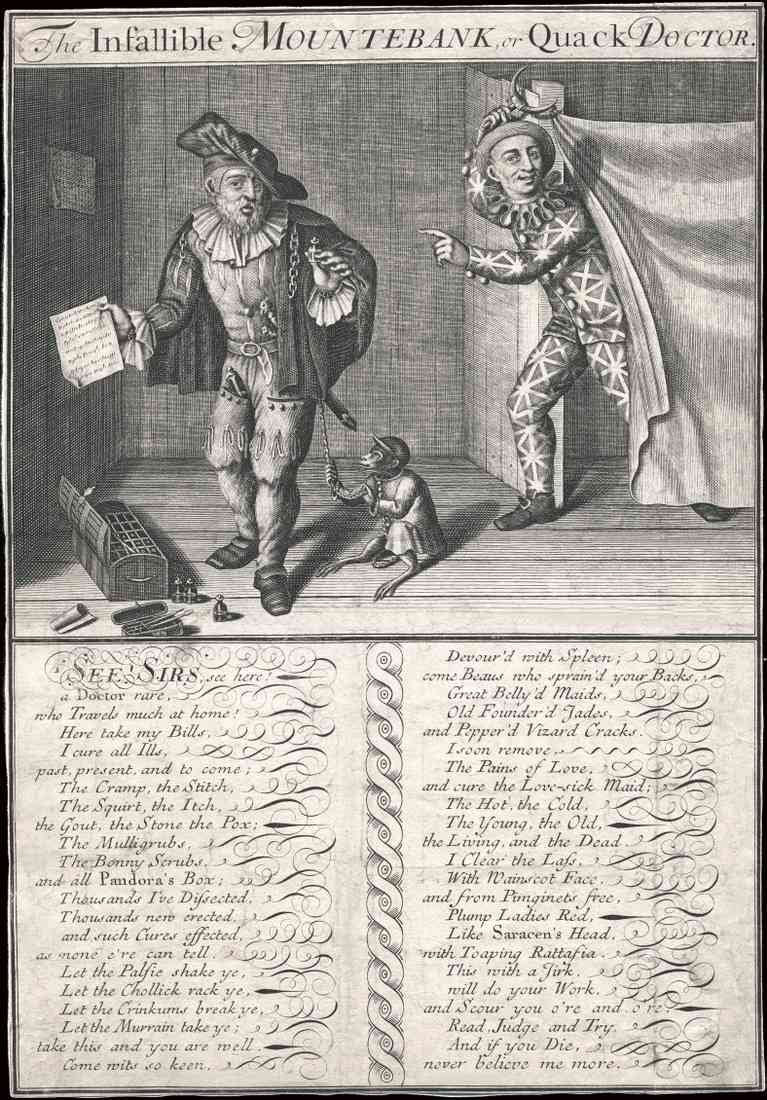 The Infallible MOUNTEBANK, or Quack DOCTOR.
SEE SIRS, see here!
a Doctor rare,
who Travels much at home!
Here take my Bills,
I cure all Ills,
past, present, and to come;
The Cramp, the Stitch,
The Squirt, the Itch,
the Gout, the Stone the Pox;
The Mulligrubs,
The Bonny Scrubs,
and all Pandora's Box;
Thousands I've Dissected,
Thousands new erected,
and such Cures effected,
as none e're can tell.
Let the Palsie shake ye,
Let the Chollick rack ye,
Let the Crinkums break ye,
Let the Murrain take ye;
take this and you are well.
Come wits so keen,
Devour'd with Spleen;
come Beaus who sprain'd your Backs,
Great Belly'd Maids,
Old Founder'd Jades,
and Pepper'd Vizard Cracks.
I soon remove,
The Pains of Love,
and cure the Love-sick Maid;
The Hot, the Cold,
The Young, the Old,
the Living, and the Dead.
I Clear the Lass,
With Wainscot Face,
and from Pimginets free,
Plump Ladies Red,
Like Saracen's Head,
with Toaping Rattafia.
This with a Jirk,
will do your Work,
and Scour you o're and o're,
Read, Judge and Try,
And if you Die,
never believe me more.